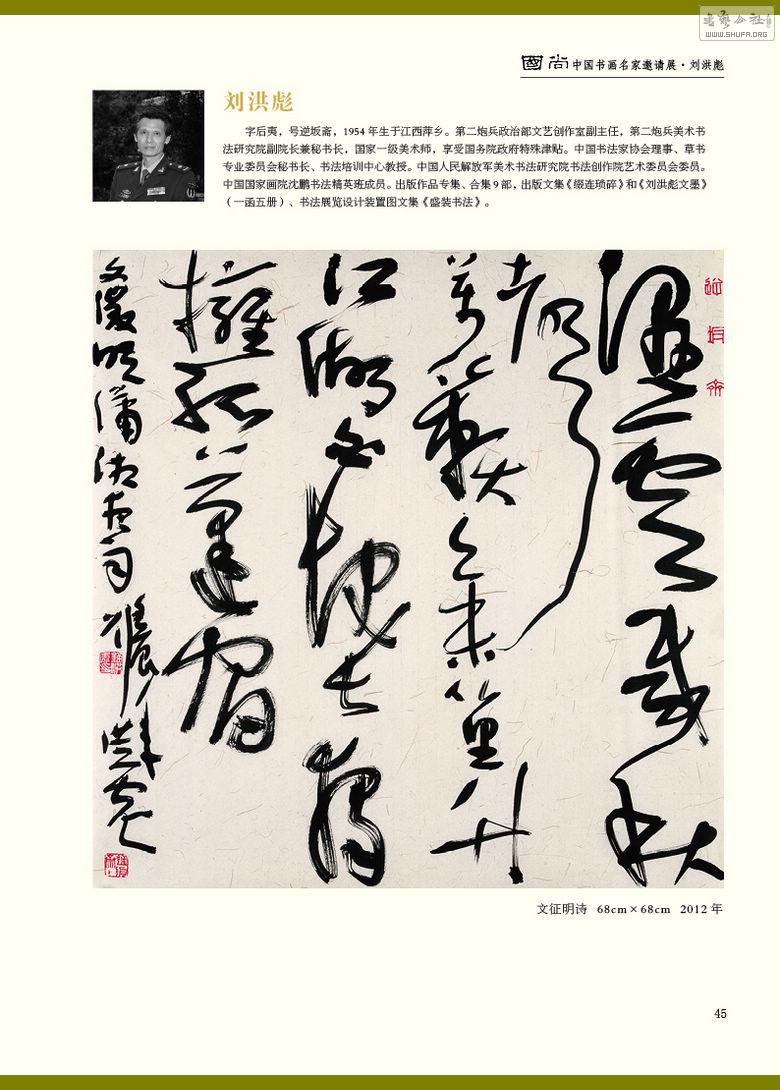 书艺公社
WWW.SHUFA.ORG
國尚 中国书画名家邀请展·刘洪彪
刘洪彪
字后夷，号逆坂斋，1954 年生于江西萍乡。第二炮兵政治部文艺创作室副主任，第二炮兵美术书
法研究院副院长兼秘书长，国家一级美术师，享受国务院政府特殊津贴。中国书法家协会理事、草书
专业委员会秘书长、书法培训中心教授。中国人民解放军美术书法研究院书法创作院艺术委员会委员。
中国国家画院沈鹏书法精英班成员。出版作品专集、合集 9 部，出版文集《缀连琐碎》和《刘洪彪文墨》
（一函五册）、书法展览设计装置图文集《盛装书法》。
逆坂斋
湿云载秋
声
萬籁集篁竹
江湖白发长独
擁孤蓬宿
文徵明潇湘夜雨 洪彪
文征明诗 68cm×68cm 2012 年
45